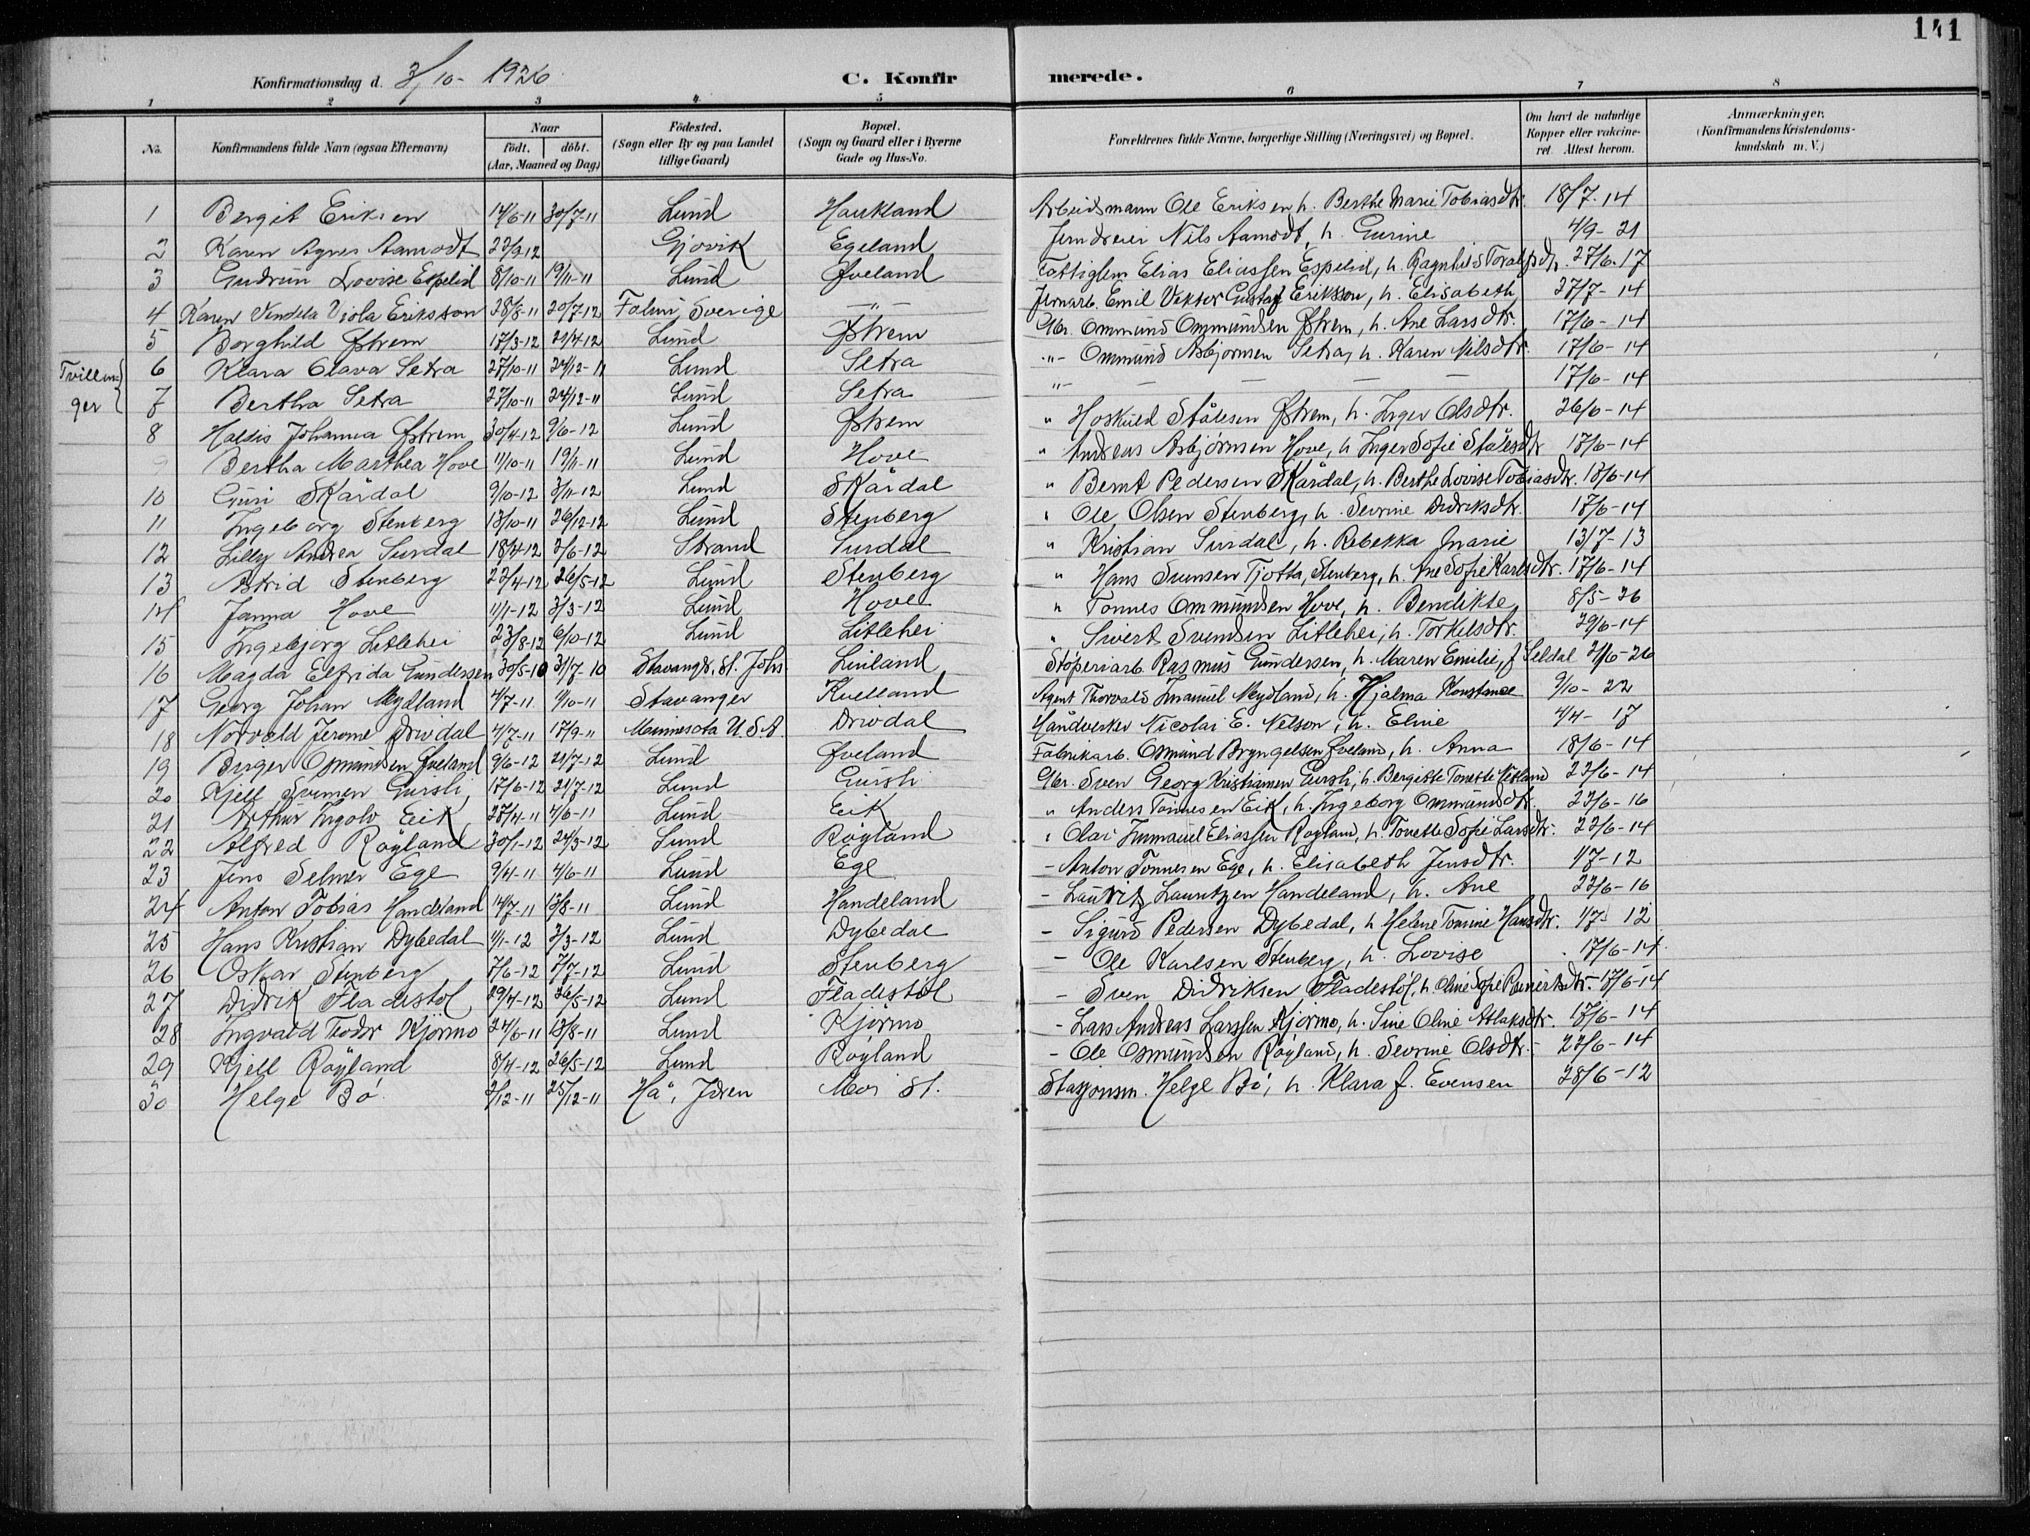 141
Konfirmationsdag d. 3/10 - 1926
C. Konfirmerede.
1 2 3 4 5 6 7 8
No. Konfirmandens fulde Navn (ogsaa Efternavn) Naar födt. döbt. (Aar, Maaned og Dag) Födested. (Sogn eller By og paa Landet tillige Gaard) Bopæl. (Sogn og Gaard eller i Byerne Gade og Hus-No. Forældrenes fulde Navne, borgerlige Stilling (Næringsvei) og Bopæl. Om havt de naturlige Kopper eller vakcineret. Attest herom. Anmærkninger. (Konfirmandens Kristendomskundskab m. V.)
1 Bergit Eriksen 14/6-11 30/7-11 Lund Haukland Arbeidsmann Ole Eriksen h. Berthe Marie Tobiasdtr. 18/7-14
2 Karen Agnes Aamodt 23/9-12 Gjøvik Egeland Jerndreier Nils Aamodt, h. Gurine 4/9-21
3 Gudrun Lovise Espelid 8/10-11 19/11-11 Lund Øveland Fattiglem Elias Eliassen Espelid, h. Ragnhild Toralfsdtr. 27/6-17
4 Karen Vendela Viola Eriksson 28/8-11 20/7-12 Falun, Sverige -"- Jernarb. Emil Viktor Gustaf Eriksson, h. Elisabeth 27/7-14
5 Borghild Østrem 17/3-12 21/4-12 Lund Østrem Gbr. Ommund Ommundsen Østrem, h. Ane Larsdtr. 17/6-14
Tvillinger
6 Klara Olava Setra 27/10-11 24/12-11 Lund Setra "- Ommund Asbjørnsen Setra, h. Karen Nilsdtr. 17/6-14
7 Bertha Setra 27/10-11 24/12-11 Lund Setra "- — — — — 17/6-14
8 Haldis Johanna Østrem 30/4-12 9/6-12 Lund Østrem " Hoskuld Stålesen Østrem, h. Inger Olsdtr. 26/6-14
9 Bertha Marthea Hove 11/10-11 19/11-11 Lund Hove " Andreas Asbjørnsen Hove, h Inger Sofie Stålesdtr 17/6-14
10 Guri Skårdal 9/10-12 3/11-12 Lund Skårdal " Bernt Pedersen Skårdal, h. Berthe Lovise Tobiasdtr. 18/6-14
11 Ingeborg Stenberg 13/10-11 26/12-12 Lund Stenberg " Ole Olsen Stenberg, h. Sevrine Didriksdtr. 17/6-14
12 Lilly Andrea Surdal 18/4-12 2/6-12 Strand Surdal " Kristian Surdal, h. Rebekka Marie 13/7-13
13 Astrid Stenberg 23/4-12 26/5-12 Lund Stenberg " Hans Svensen Tjotta, Stenberg, h. Ane Sofie Karlsdtr. 17/6-14
14 Janna Hove 11/1-12 3/3-12 Lund Hove " Tønnes Ommundsen Hove, h. Bendikte 8/5-26
15 Ingebjørg Litlehei 23/8-12 6/10-12 Lund Litlehei " Sivert Svendsen Litlehei, h. Torkelsdtr. 29/6-14
16 Magda Elfrida Gundersen 30/5-10 31/7-10 Stavanger, St. Johs Liuland Støperiarb. Rasmus Gundersen, h. Maren Emilie, f Seldal 21/6-26
17 Georg Johan Mydland 4/7-11 1/10-11 Stavanger Kvelland Agent Thorvald Imanuel Mydland, h. Hjalma Konstance 9/10-22
18 Norvald Jerome Drivdal 4/7-11 17/9-11 Minnesota U.S.A. Drivdal Håndverker Nicolai E. Nelson, h. Eline 4/4-17
19 Birger Osmundsen Øveland 9/6-12 21/7-12 Lund Øveland Fabrikarb. Osmund Bryngelsen Øveland, h. Anna 18/6-14
20 Kjell Svensen Gursli, 17/6-12 21/7-12 Lund Gursli Gbr. Sven Georg Kristiansen Gursli, h. Bergitte Tonette Netland 23/6-14
21 Arthur Ingolv Eik 28/4-11 4/6-11 Lund Eik " Anders Tønnesen Eik, h. Ingeborg Ommundsdtr. 23/6-16
22 Alfred Røyland 30/1-12 24/3-12 Lund Røyland " Olai Immanuel Eliassen Røyland, h. Tonette Sofie Larsdtr. 23/6-14
23 Jens Selmer Ege 9/4-11 4/6-11 Lund Ege - Anton Tønnesen Ege, h. Elisabeth Jensdtr. 1/7-12
24 Anton Tobias Handeland 14/7-11 13/8-11 Lund Handeland - Lauritz Lauritzen Handeland, h. Ane 23/6-16
25 Hans Kristian Dybedal 1/1-12 3/3-12 Lund Dybedal - Sigurd Pedersen Dybedal, h Helene Tomine Hansdtr. 1/7-12
26 Oskar Stenberg 7/6-12 7/7-12 Lund Stenberg - Ole Karlsen Stenberg, h. Lovise 17/6-14
27 Didrik Fladestøl 29/4-12 26/5-12 Lund Fladestøl - Sven Didriksen Fladestøl, h. Oline Sofie Reinertsdtr. 17/6-14
28 Ingvald Teodor Kjørmo 24/6-11 13/8-11 Lund Kjørmo - Lars Andreas Larssen Kjørmo, h. Sine Oline Atlaksdtr. 17/6-14
29 Kjell Røyland 8/4-12 26/5-12 Lund Røyland - Ole Osmundsen Røyland, h. Sevrine Olsdtr. 23/6-14
30 Helge Bø 2/12-11 25/12-11 Hå, Jæren Moi St. Stasjonsm. Helge Bø, h. Klara f. Evensen 28/6-12